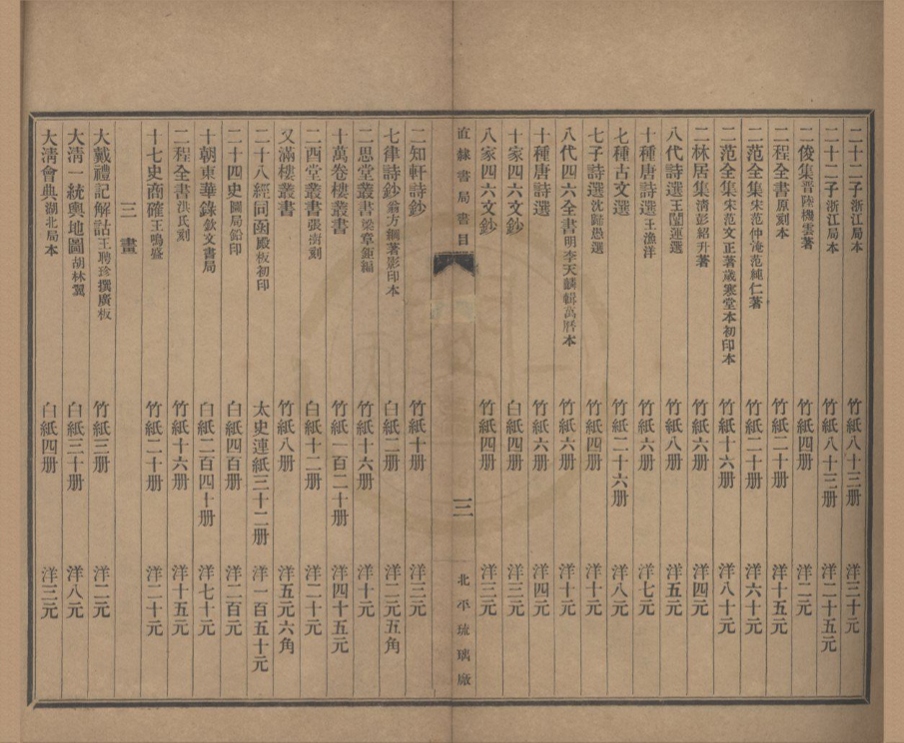 二十二子浙江局本 竹紙八十三册 洋三十元
二十二子浙江局本 竹紙八十三册 洋二十五元
二俊集晋陸機雲著 竹紙四册 洋二元
二程全書原刻本 竹紙二十册 洋十五元
二范全集宋范仲淹范純仁著 竹紙二十册 洋六十元
二范全集宋范文正著歲寒堂本初印本 竹紙十六册 洋八十元
二林居集清彭紹升著 竹紙六册 洋四元
八代詩選王闓運選 竹紙八册 洋五元
十種唐詩選王漁洋 竹紙六册 洋七元
七種古文選 竹紙二十六册 洋八元
七子詩選沈歸愚選 竹紙四册 洋十元
八代四六全書明李天麟輯萬曆本 竹紙六册 洋十元
十種唐詩選 竹紙六册 洋四元
十家四六文鈔 白紙四册 洋三元
八家四六文鈔 竹紙四册 洋三元
直隸書局書目 三 北平琉璃廠
二知軒詩鈔 竹紙十册 洋三元
七律詩鈔翁方綱著影印本 白紙二册 洋二元五角
二思堂叢書梁章鉅編 竹紙十六册 洋十元
十萬卷樓叢書 竹紙一百二十册 洋四十五元
二酉堂叢書張澍刻 白紙十二册 洋二十元
又滿樓叢書 竹紙八册 洋五元六角
二十八經同函殿板初印 太史連紙三十二册 洋一百五十元
二十四史圖局鉛印 白紙四百册 洋二百元
十朝東華錄欽文書局 白紙二百四十册 洋七十元
二程全書洪氏刻 竹紙十六册 洋十五元
十七史商確王鳴盛 竹紙二十册 洋二十元
三畫
大戴禮記解詁王聘珍撰廣板 竹紙三册 洋二元
大清一統輿地圖胡林翼 白紙三十册 洋八元
大清會典湖北局本 白紙四册 洋三元